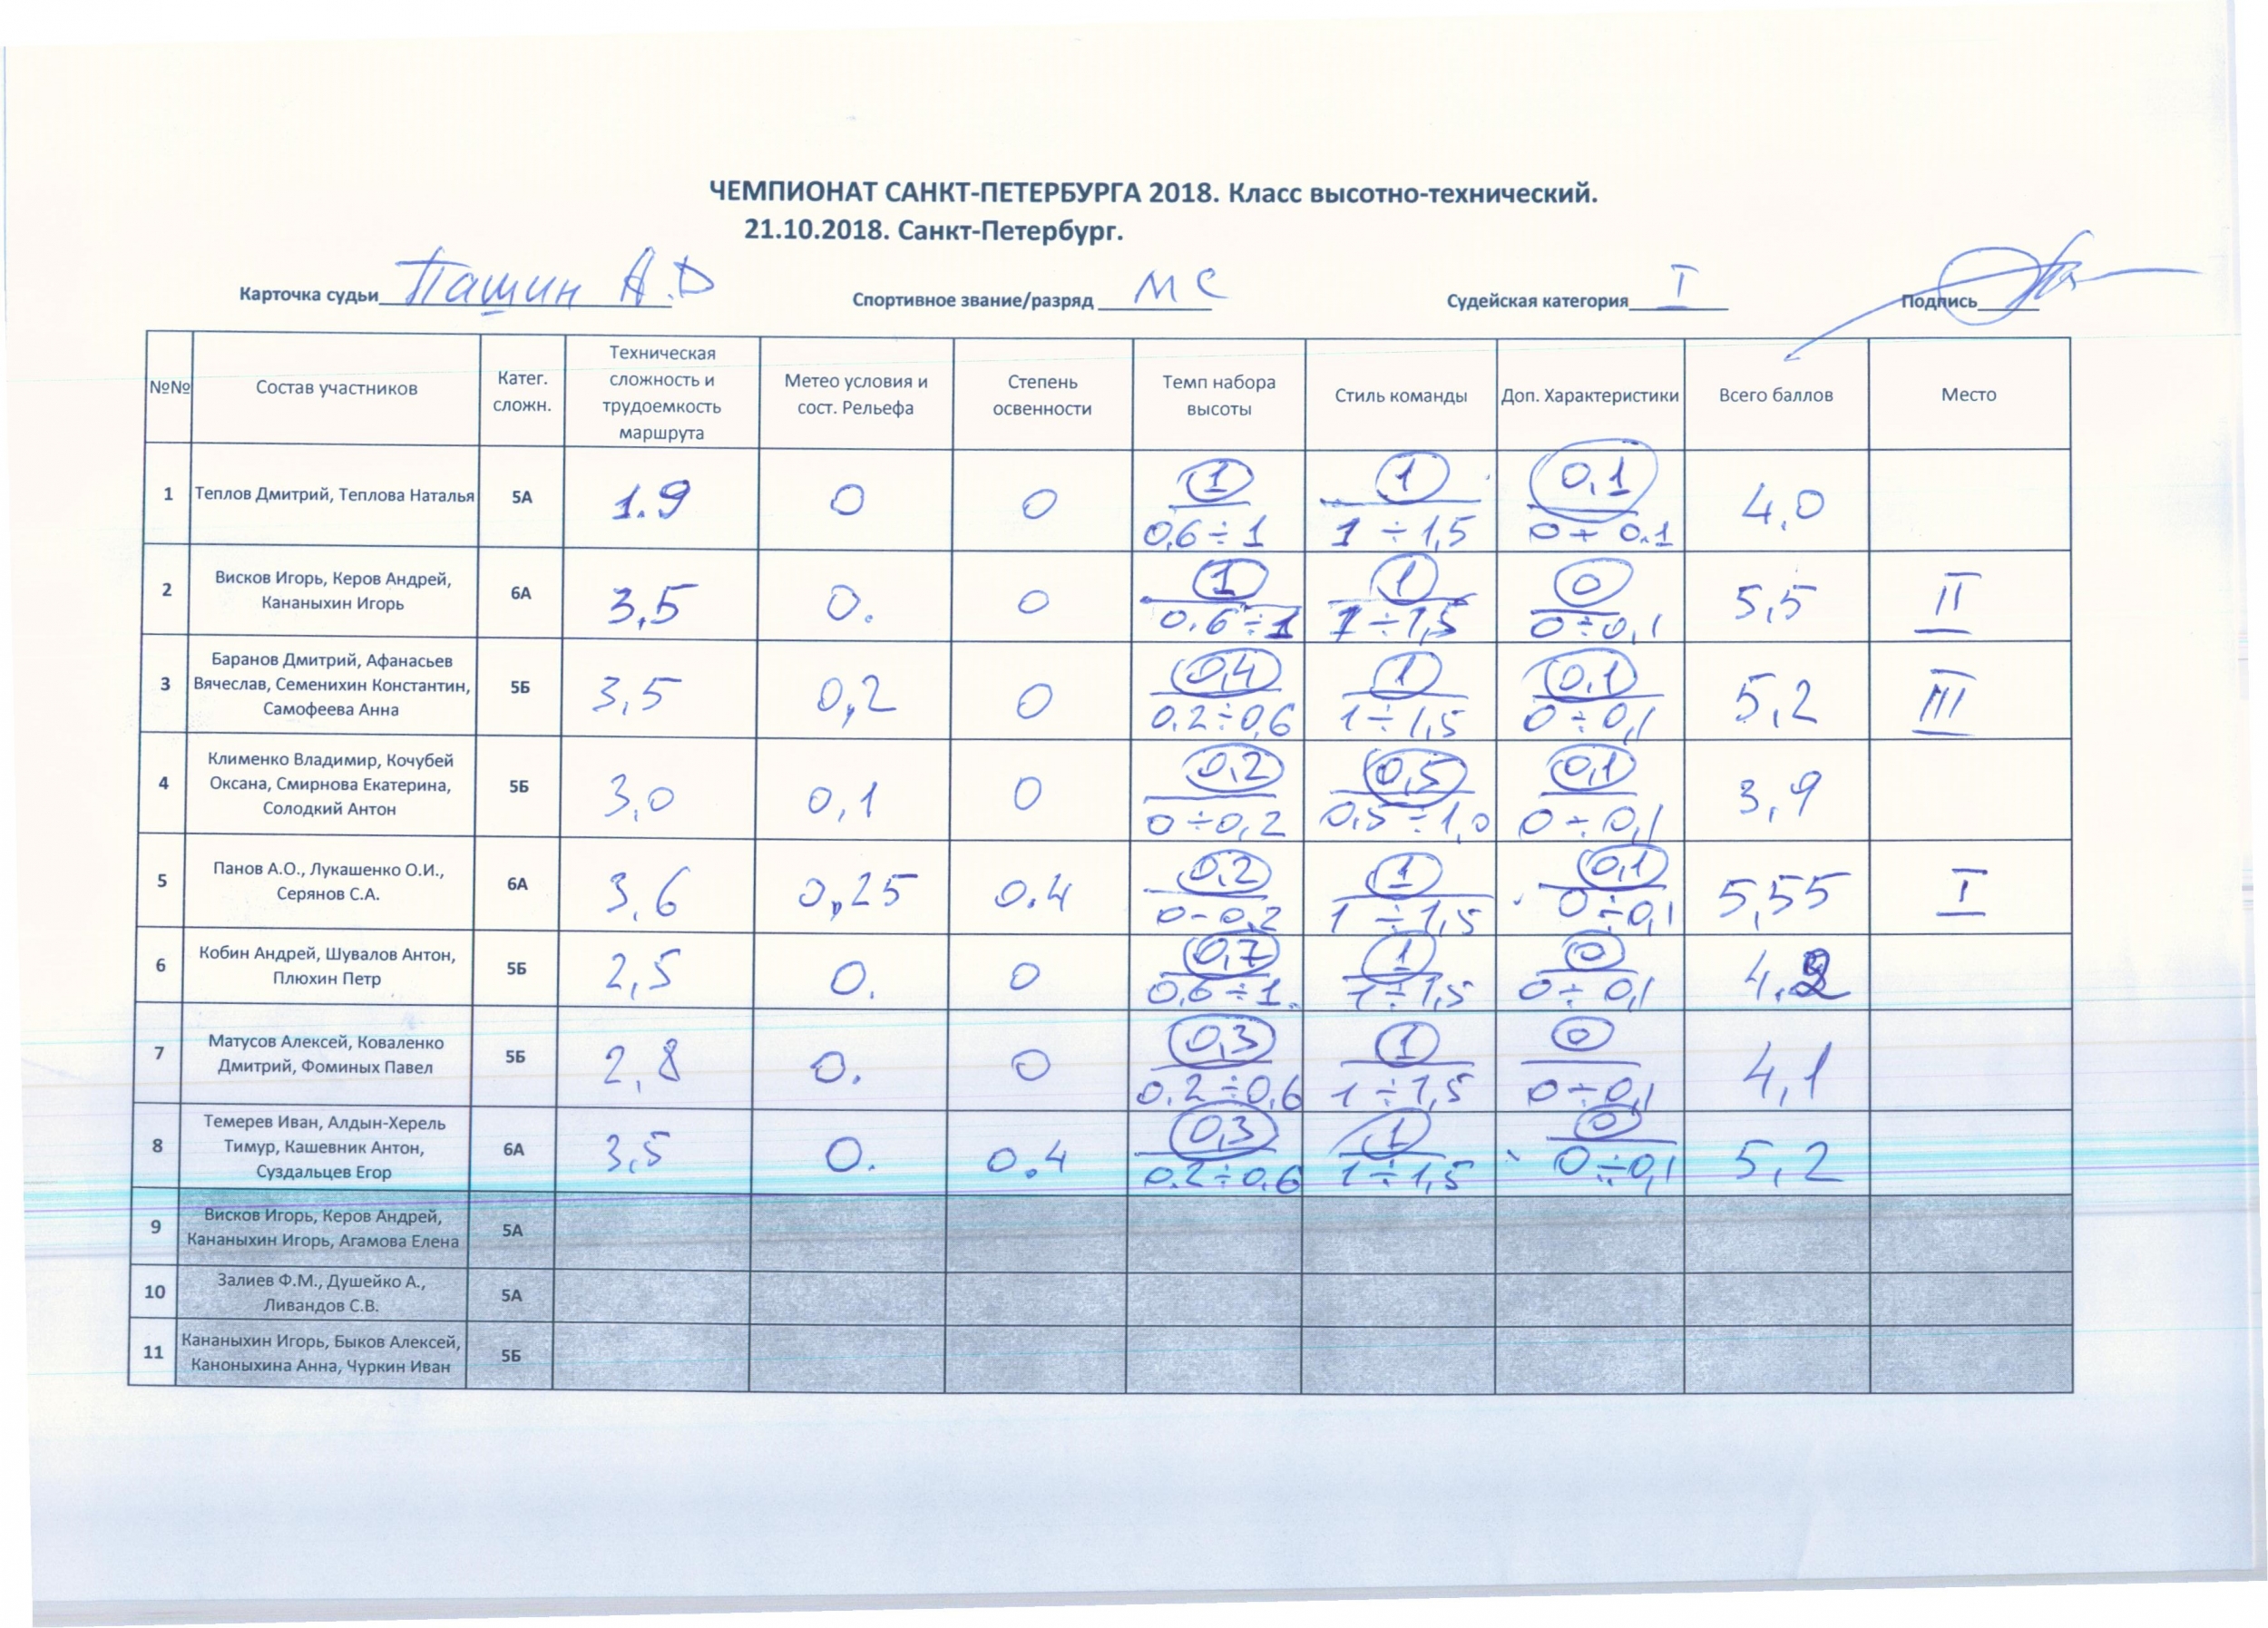 ЧЕМПИОНАТ САНКТ-ПЕТЕРБУРГА 2018. Класс высотно-технический.
21.10.2018. Санкт-Петербург.
Карточка судьи Пашин А.Д Спортивное звание/разряд МС Судейская категория I Подпись
№№ Состав участников Катег. сложн. Техническая сложность и трудоемкость маршрута Метео условия и сост. Рельефа Степень освенности Темп набора высоты Стиль команды Доп. Характеристики Всего баллов Место
1 Теплов Дмитрий, Теплова Наталья 5А 1.9 0 0 1 1 0,1 4,0
0,6÷1 1÷1,5 0÷0.1
2 Висков Игорь, Керов Андрей, Кананыхин Игорь 6А 3,5 0. 0 1 1 0 5,5 II
0.6÷1 1÷1,5 0÷0,1
3 Баранов Дмитрий, Афанасьев Вячеслав, Семенихин Константин, Самофеева Анна 5Б 3,5 0,2 0 0,4 1 0,1 5,2 III
0.2÷0,6 1÷1,5 0÷0,1
4 Клименко Владимир, Кочубей Оксана, Смирнова Екатерина, Солодкий Антон 5Б 3,0 0,1 0 0,2 0,5 0,1 3,9
0÷0,2 0,5÷1,0 0÷0,1
5 Панов А.О., Лукашенко О.И., Серянов С.А. 6А 3,6 0,25 0.4 0,2 1 0,1 5,55 I
0-0,2 1÷1,5 0÷0,1
6 Кобин Андрей, Шувалов Антон, Плюхин Петр 5Б 2,5 0. 0 0,7 1 0 4.2
0,6÷1. 1÷1,5 0÷0,1
7 Матусов Алексей, Коваленко Дмитрий, Фоминых Павел 5Б 2,8 0. 0 0,3 1 0 4,1
0.2÷0,6 1÷1,5 0÷0,1
8 Темерев Иван, Алдын-Херель Тимур, Кашевник Антон, Суздальцев Егор 6А 3,5 0. 0.4 0,3 1 0 5,2
0.2÷0.6 1÷1,5 0÷0,1
9 Висков Игорь, Керов Андрей, Кананыхин Игорь, Агамова Елена 5А
10 Залиев Ф.М., Душейко А., Ливандов С.В. 5А
11 Кананыхин Игорь, Быков Алексей, Каноныхина Анна, Чуркин Иван 5Б